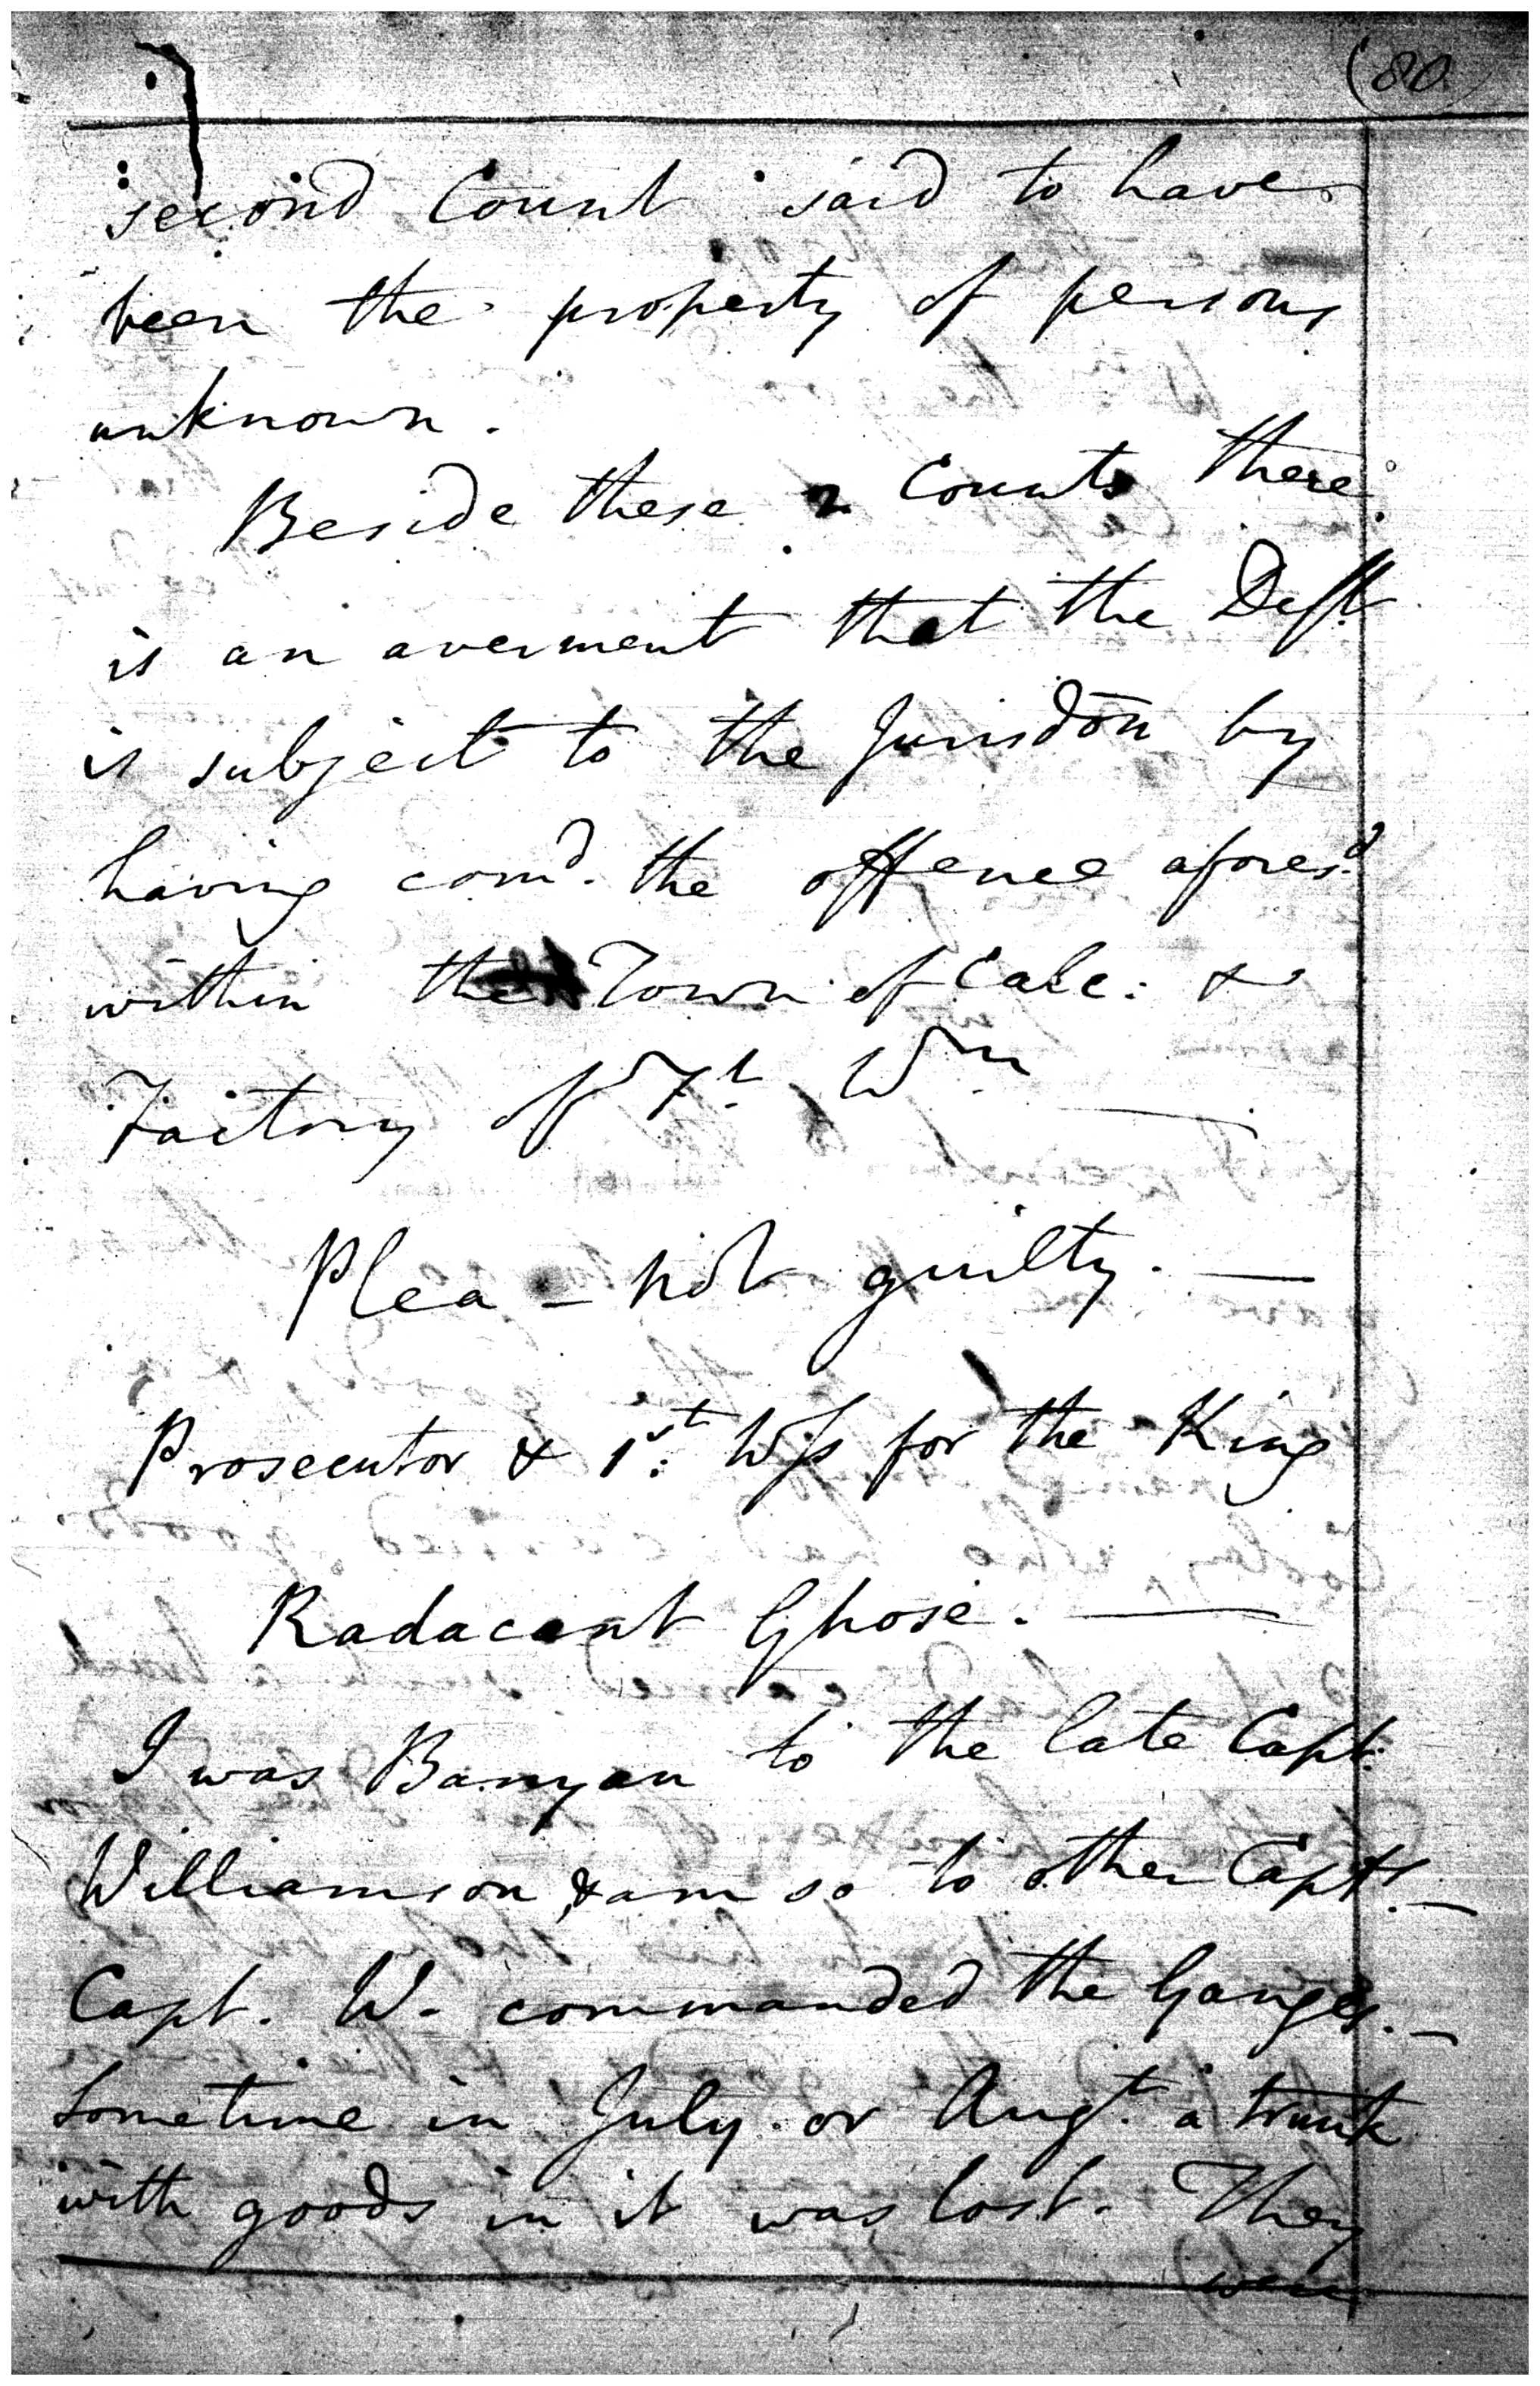 (80)
second Count said to have
been the property of persons
unknown.
Beside these 2 Counts there
is an averment that the Deft
is subject to the Jurisdon by
having comd. the offence aforesd.
within the Town of Calc: &
Factory of Ft. Wm
Plea - not guilty. —
Prosecutor & 1st: Wss for the King
Radacant Ghose. —
I was Banyan to the late Capt:
Williamson, & am so to other Capts. —
Capt. W. commanded the Ganges. —
Sometime in July or Augt. a trunk
with goods in it was lost. They
were